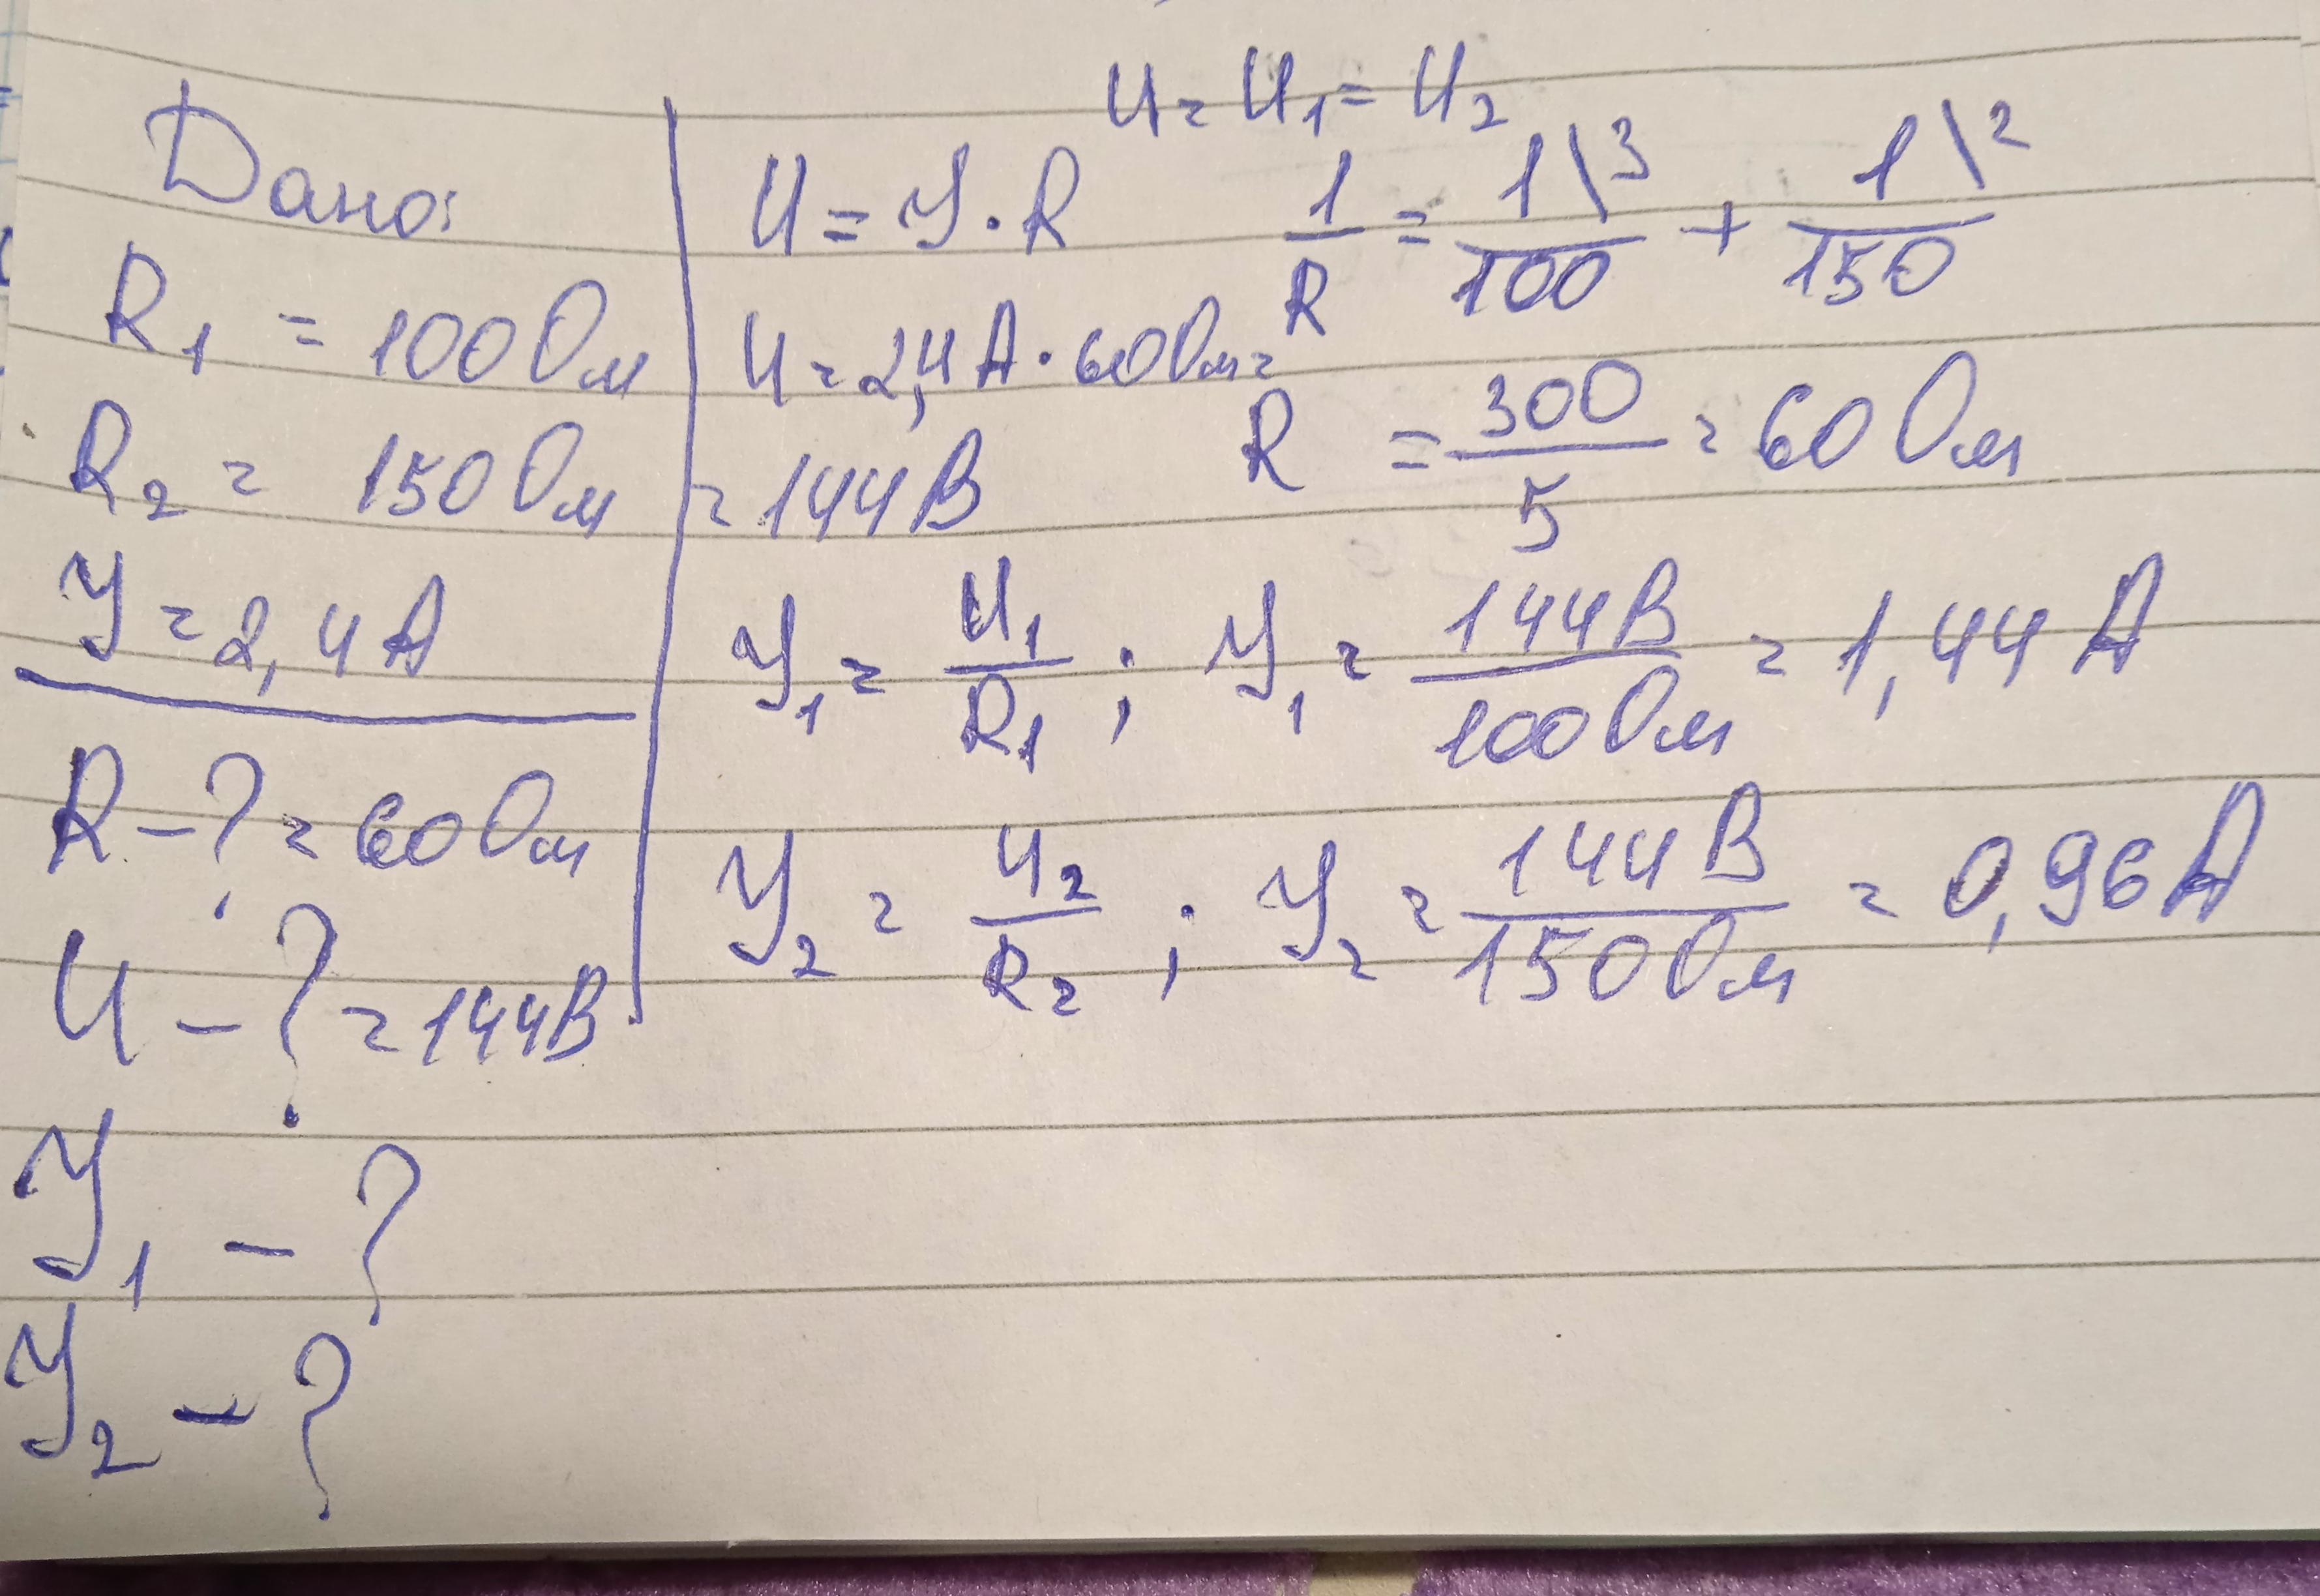 Дано:
R₁ = 100 Ом
R₂ = 150 Ом
У = 2,4 А
R - ? = 60 Ом
U - ? = 144 В
У₁ - ?
У₂ - ?
U = U₁ = U₂
U = У · R
1/R = 1\³/100 + 1\²/150
U = 2,4 А · 60 Ом =
= 144 В
R = 300/5 = 60 Ом
У₁ = U₁/R₁ ; У₁ = 144 В/100 Ом = 1,44 А
У₂ = U₂/R₂ ; У₂ = 144 В/150 Ом = 0,96 А